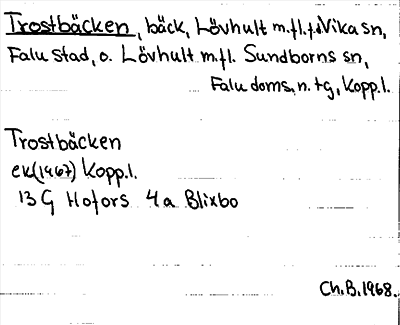 Trostbäcken, bäck, Lövhult m.fl.f.d Vika sn,
Falu stad, o. Lövhult m.fl. Sundborns sn,
Falu doms. n. tg, Kopp.l.
Trostbäcken
ek (1967) Kopp.l.
13 G Hofors 4a Blixbo
Ch.B.1968.